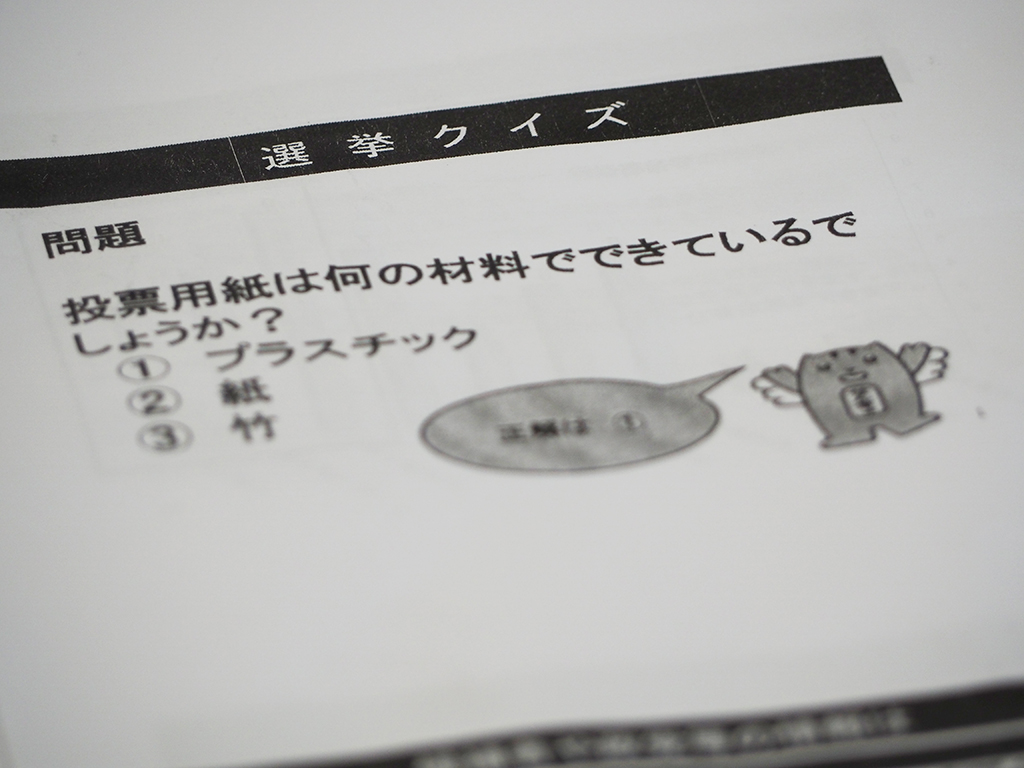 選挙クイズ
問題
投票用紙は何の材料でできているで
しょうか？
① プラスチック
② 紙
③ 竹
正解は ①